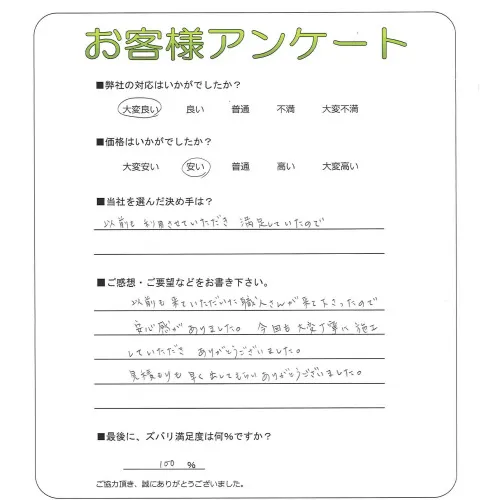 お客様アンケート
■弊社の対応はいかがでしたか？
大変良い 良い 普通 不満 大変不満
■価格はいかがでしたか？
大変安い 安い 普通 高い 大変高い
■当社を選んだ決め手は？
以前も利用させていただき 満足していたので
■ご感想・ご要望などをお書き下さい。
以前も来ていただいた職人さんが来て下さったので
安心感がありました。 今回も大変丁寧に施工
していただき ありがとうございました。
見積もりも早く出してもらいありがとうございました。
■最後に、ズバリ満足度は何%ですか？
100 %
ご協力頂き、誠にありがとうございました。